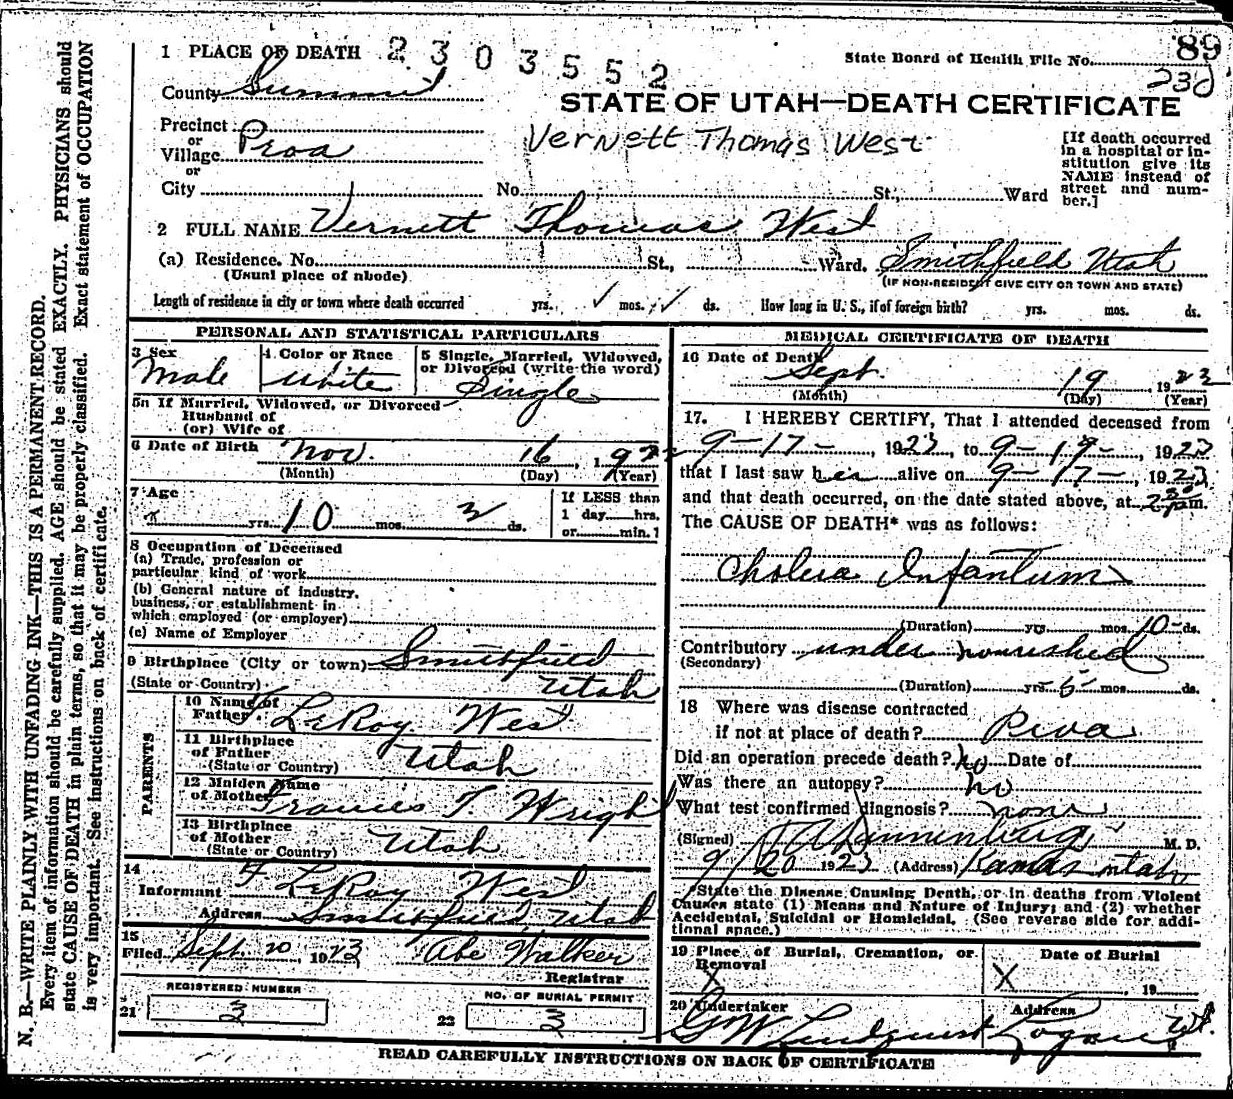 89
1 PLACE OF DEATH 2303552
State Board of Health File No. 230
County Summit
STATE OF UTAH—DEATH CERTIFICATE
Precinct
or
Village Peoa
or
City No. St., Ward
Vernett Thomas West
[If death occurred
in a hospital or in-
stitution give its
NAME instead of
street and num-
ber.]
2 FULL NAME Vernett Thomas West
(a) Residence. No. St., Ward. Smithfield Utah
(Usual place of abode) (IF NON-RESIDENT GIVE CITY OR TOWN AND STATE)
Length of residence in city or town where death occurred yrs. ✓ mos. ✓ ds. How long in U. S., if of foreign birth? yrs. mos. ds.
PERSONAL AND STATISTICAL PARTICULARS
3 Sex
Male
4 Color or Race
White
5 Single, Married, Widowed,
or Divorced (write the word)
Single
5a If Married, Widowed, or Divorced
Husband of
(or) Wife of
6 Date of Birth Nov. 16, 1922
(Month) (Day) (Year)
7 Age
yrs. 10 mos. 3 ds.
If LESS than
1 day hrs.
or min.?
8 Occupation of Deceased
(a) Trade, profession or
particular kind of work
(b) General nature of industry,
business, or establishment in
which employed (or employer)
(c) Name of Employer
9 Birthplace (City or town) Smithfield
(State or Country) Utah
PARENTS
10 Name of
Father F LeRoy West
11 Birthplace
of Father
(State or Country) Utah
12 Maiden Name
of Mother Frances T. Wright
13 Birthplace
of Mother
(State or Country) Utah
14
Informant F LeRoy West
Address Smithfield, Utah
15
Filed Sept. 20, 1923 Abe Walker
Registrar
REGISTERED NUMBER
21 3
NO. OF BURIAL PERMIT
22 3
MEDICAL CERTIFICATE OF DEATH
16 Date of Death Sept. 19, 1923
(Month) (Day) (Year)
17. I HEREBY CERTIFY, That I attended deceased from
9-17-, 1923, to 9-19-, 1923
that I last saw him alive on 9-17-, 1923,
and that death occurred, on the date stated above, at 2:30 pm.
The CAUSE OF DEATH* was as follows:
Cholera Infantum
(Duration) yrs. mos. 10 ds.
Contributory under nourished
(Secondary)
(Duration) yrs. 5 mos. ds.
18 Where was disease contracted
if not at place of death? Peoa
Did an operation precede death? no Date of
Was there an autopsy? no
What test confirmed diagnosis? none
(Signed) M. D.
9/20 1923 (Address) Kamas Utah
*State the Disease Causing Death, or in deaths from Violent
Causes state (1) Means and Nature of Injury; and (2) whether
Accidental, Suicidal or Homicidal. (See reverse side for addi-
tional space.)
19 Place of Burial, Cremation, or
Removal
X
Date of Burial
X , 19
20 Undertaker
G W Lindquist
Address
Logan, Ut.
READ CAREFULLY INSTRUCTIONS ON BACK OF CERTIFICATE
N. B.—WRITE PLAINLY WITH UNFADING INK—THIS IS A PERMANENT RECORD.
Every item of information should be carefully supplied. AGE should be stated EXACTLY. PHYSICIANS should
state CAUSE OF DEATH in plain terms, so that it may be properly classified. Exact statement of OCCUPATION
is very important. See instructions on back of certificate.